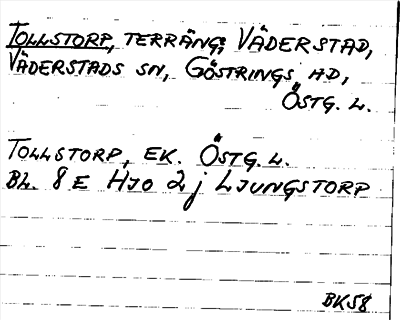 TOLLSTORP, TERRÄNG; VÄDERSTAD,
VÄDERSTADS SN, GÖSTRINGS HD,
ÖSTG. L.
TOLLSTORP, EK. ÖSTG. L.
BL. 8 E HJO 2 j LJUNGSTORP
BK58